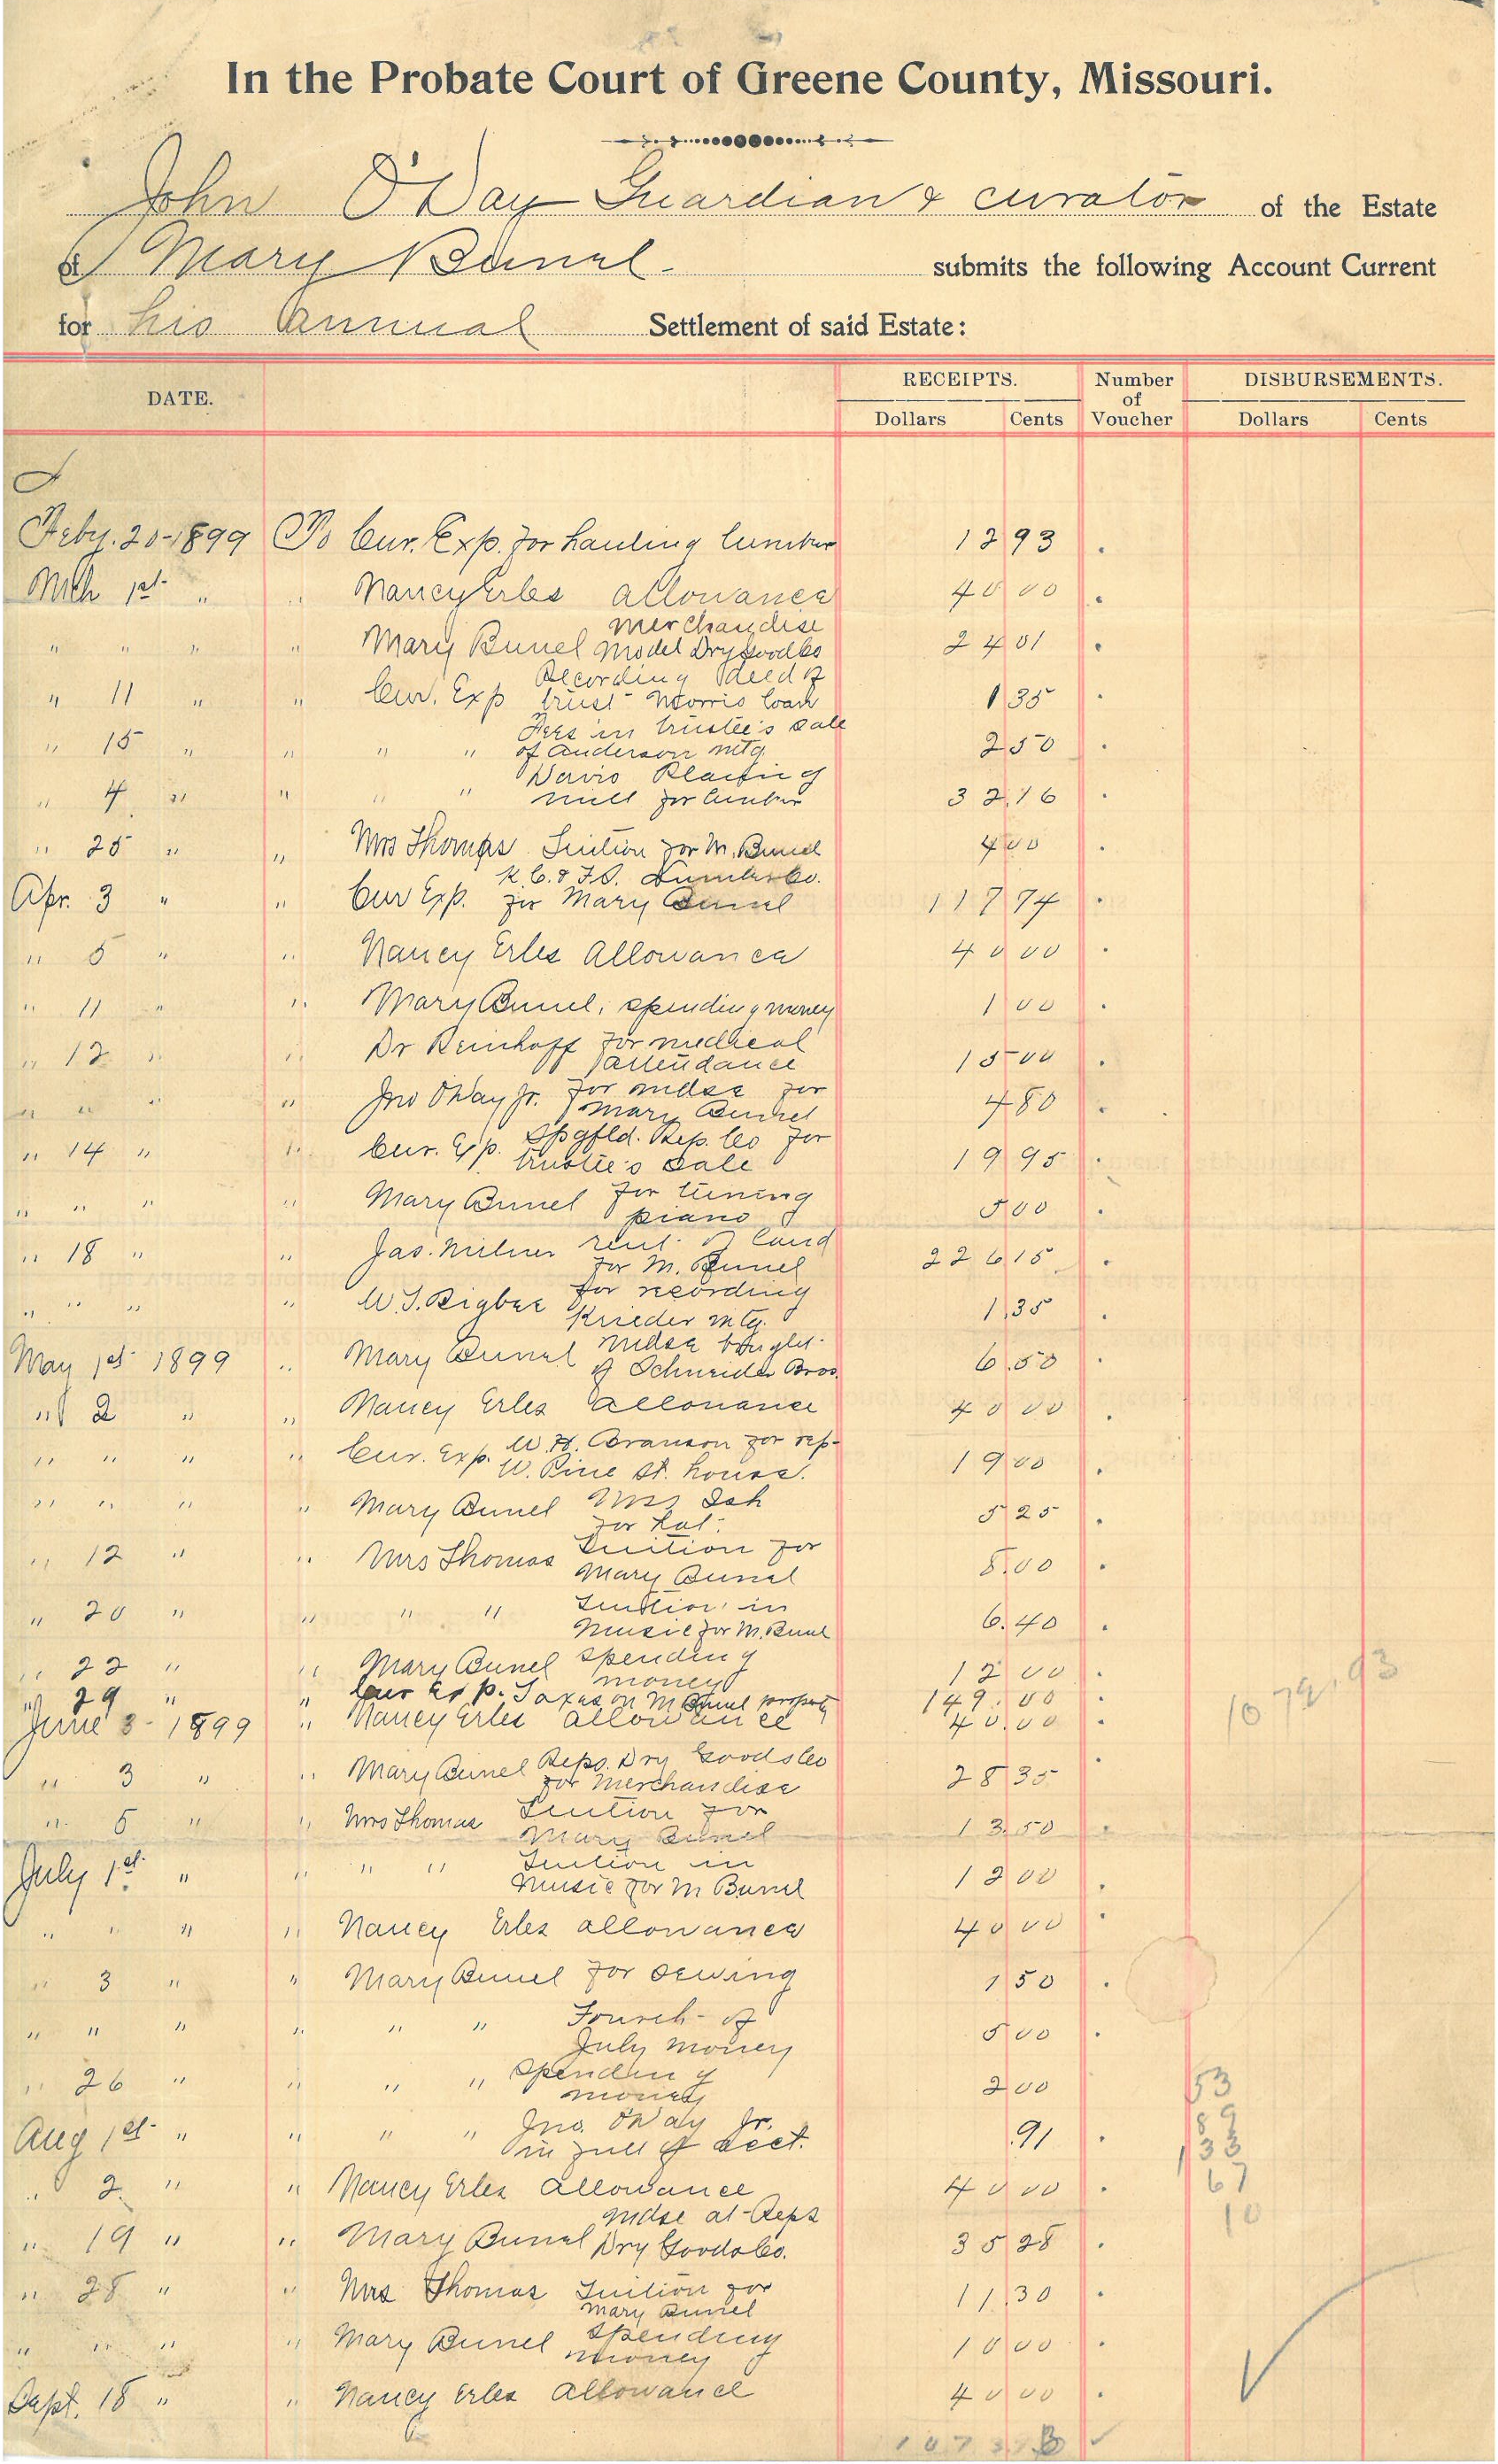 In the Probate Court of Greene County, Missouri.
John O'Day Guardian & curator of the Estate
of Mary Bunel submits the following Account Current
for his Annual Settlement of said Estate:
DATE. RECEIPTS. Number of Voucher DISBURSEMENTS.
Dollars Cents Dollars Cents
Feby. 20-1899 To Cur. Exp. for hauling lumber 12 93
Mch 1st " " Nancy Erles allowance 40 00
merchandise
" " " " Mary Bunel Model Dry Goods Co 24 01
Recording deed of
" 11 " " Cur. Exp trust Morris loan 1 35
Fees in trustee's sale
" 15 " " " " of Anderson mtg. 2 50
Davis Planing
" 4 " " " " mill for lumber 32.16
" 25 " " Mrs Thomas Tuition for M. Bunel 4 00
K.C. & F.S. Lumber Co.
Apr. 3 " " Cur Exp. for Mary Bunel 117 74
" 5 " " Nancy Erles Allowance 40 00
" 11 " " Mary Bunel, spending money 1 00
" 12 " " Dr Reinhoff for medical
attendance 15 00
" " " " Jno O'Day Jr. for mdse for
Mary Bunel 4 80
" 14 " " Cur. Exp. Spgfld. Rep. Co for
trustee's sale 19 95
" " " " Mary Bunel for tuning
piano 5 00
" 18 " " Jas. Milner rent of land
for M. Bunel 226 15
" " " " W.S. Bigbee for recording
Krieder mtg. 1.35
May 1st 1899 " Mary Bunel mdse bought
of Schneider Bros. 6.50
" 2 " " Nancy Erles allowance 40 00
" " " " Cur. Exp. W.H. Branson for rep-
W. Pine St. house. 19 00
" " " " Mary Bunel Mrs Ish
for hat. 5 25
" 12 " " Mrs Thomas Tuition for
Mary Bunel 8.00
" 20 " " " " Tuition in
Music for M. Bunel 6.40
" 22 " " Mary Bunel spending
money 12 00
" 29 " " Cur Exp. Taxes on M Bunel property 149.00
June 3- 1899 " Nancy Erles allowance 40.00
" 3 " " Mary Bunel Reps. Dry Goods Co
for Merchandise 28 35
" 5 " " Mrs Thomas Tuition for
Mary Bunel 13.50
July 1st " " " " Tuition in
Music for M Bunel 12 00
" " " " Nancy Erles allowance 40 00
" 3 " " Mary Bunel for sewing 1 50
" " " " " " Fourth of
July money 5 00
" 26 " " " " spending
money 2 00
Aug 1st " " " " Jno. O'Day Jr.
in full of acct. .91
" 2 " " Nancy Erles allowance 40 00
mdse at Reps
" 19 " " Mary Bunel Dry Goods Co. 35 28
" 28 " " Mrs Thomas Tuition for
Mary Bunel 11.30
" " " " Mary Bunel spending
money 10 00
Sept. 18 " " Nancy Erles Allowance 40 00
53
89
133
67
10